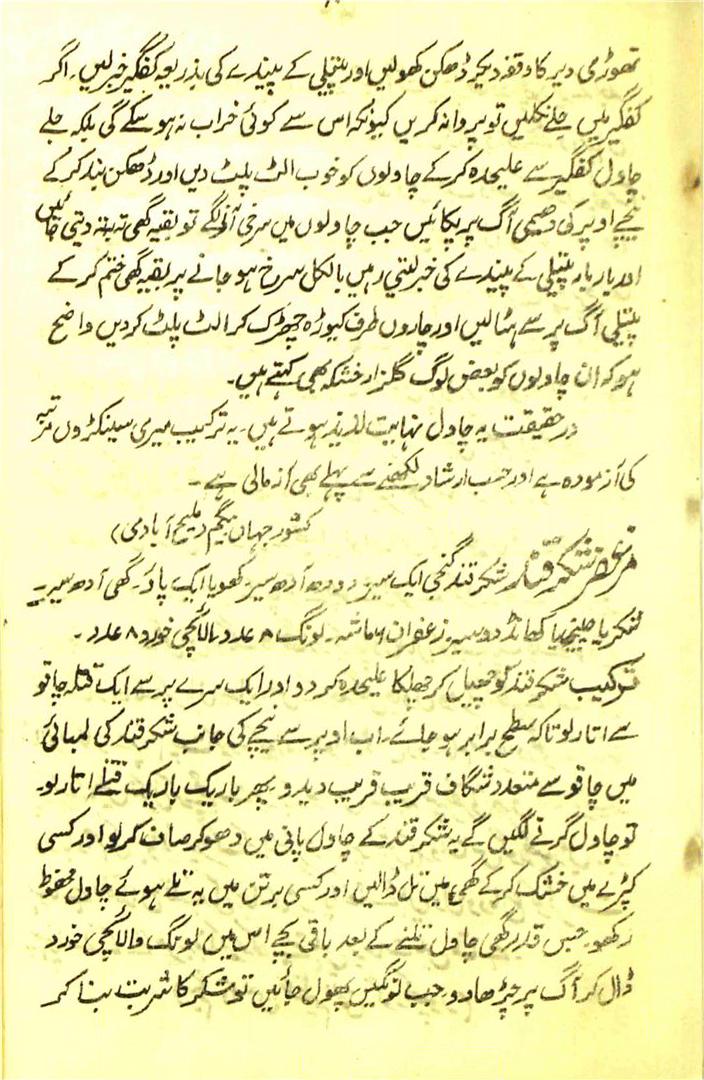 تھوڑی دیر کا وقفہ دیکر ڈھکن کھولیں اور پتیلی کے پیندے کی بذریعہ کفگیر خبر لیں۔ اگر
کفگیر میں جلے نکلیں تو پروا نہ کریں کیونکہ اس سے کوئی خراب نہ ہو سکے گی بلکہ جلے
چاول کفگیر سے علیحدہ کر کے چاولوں کو خوب الٹ پلٹ دیں اور ڈھکن بند کر کے
نیچے اوپر کی دھیمی آگ پر پکائیں جب چاولوں میں سرخی آنے لگے تو بقیہ گھی تہ بتہ دیتی جائیں
اور بار بار پتیلی کے پیندے کی خبر لیتی رہیں بالکل سرخ ہو جانے پر بقیہ گھی ختم کر کے
پتیلی آگ پر سے ہٹالیں اور چاروں طرف کیوڑہ چھڑک کر الٹ پلٹ کر دیں واضح
ہو کہ ان چاولوں کو بعض لوگ گلزار خشکہ بھی کہتے ہیں۔
در حقیقت یہ چاول نہایت لذیذ ہوتے ہیں۔ یہ ترکیب میری سینکڑوں مرتبہ
کی آزمودہ ہے اور حسب ارشاد لکھنے سے پہلے بھی آزمالی ہے۔
کشور جہاں بیگم (ملیح آبادی)
مزعفر شکر قند شکر قند گنجی ایک سیر۔ دودھ آدھ سیر۔ کھویا ایک پاؤ۔ گھی آدھ سیر۔
شکر یا چینی یا کھانڈ دو سیر۔ زعفران ۶ ماشہ۔ لونگ ۸ عدد۔ الائچی خورد ۸ عدد۔
ترکیب شکر قند کو چھیل کر چھلکا علیحدہ کر دو اور ایک سرے پر سے ایک قتلہ چاقو
سے اتار لو تاکہ سطح برابر ہو جائے۔ اب اوپر سے نیچے کی جانب شکر قند کی لمبائی
میں چاقو سے متعدد شگاف قریب قریب دیدو۔ پھر باریک باریک قتلے اتار لو۔
تو چاول گرنے لگیں گے یہ شکر قند کے چاول پانی میں دھو کر صاف کر لو اور کسی
کپڑے میں خشک کر کے گھی میں تل ڈالیں اور کسی برتن میں یہ تلے ہوئے چاول محفوظ
رکھو۔ جس قدر گھی چاول تلنے کے بعد باقی بچے اس میں لونگ و الائچی خورد
ڈال کر آگ پر چڑھا دو۔ جب لونگیں پھول جائیں تو شکر کا شربت بنا کر